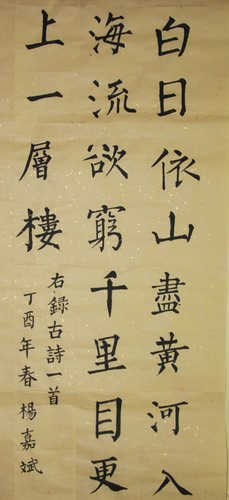 白日依山盡黃河入
海流欲窮千里目更
上一層樓
右錄古詩一首
丁酉年春楊嘉斌